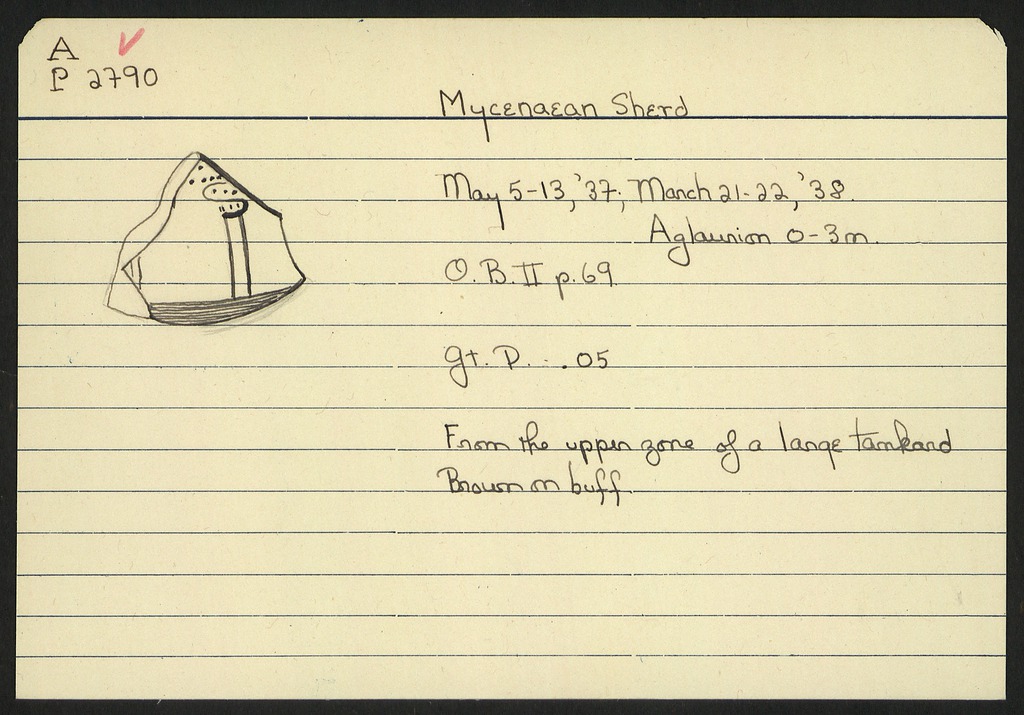 A
P 2790
Mycenaean Sherd
May 5-13, '37; March 21-22, '38.
Aglaurion 0-3m.
O.B. II p. 69.
gt. P. - .05
From the upper zone of a large tankard
Brown on buff